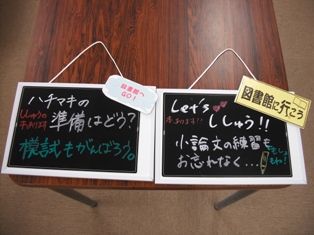 図書館へ
GO!
ハチマキの
ししゅうの
本あります
準備はどう?
模試もがんばろう。
図書館に行こう
Let's
ししゅう!!
本あります!!
小論文の練習も
お忘れなく…